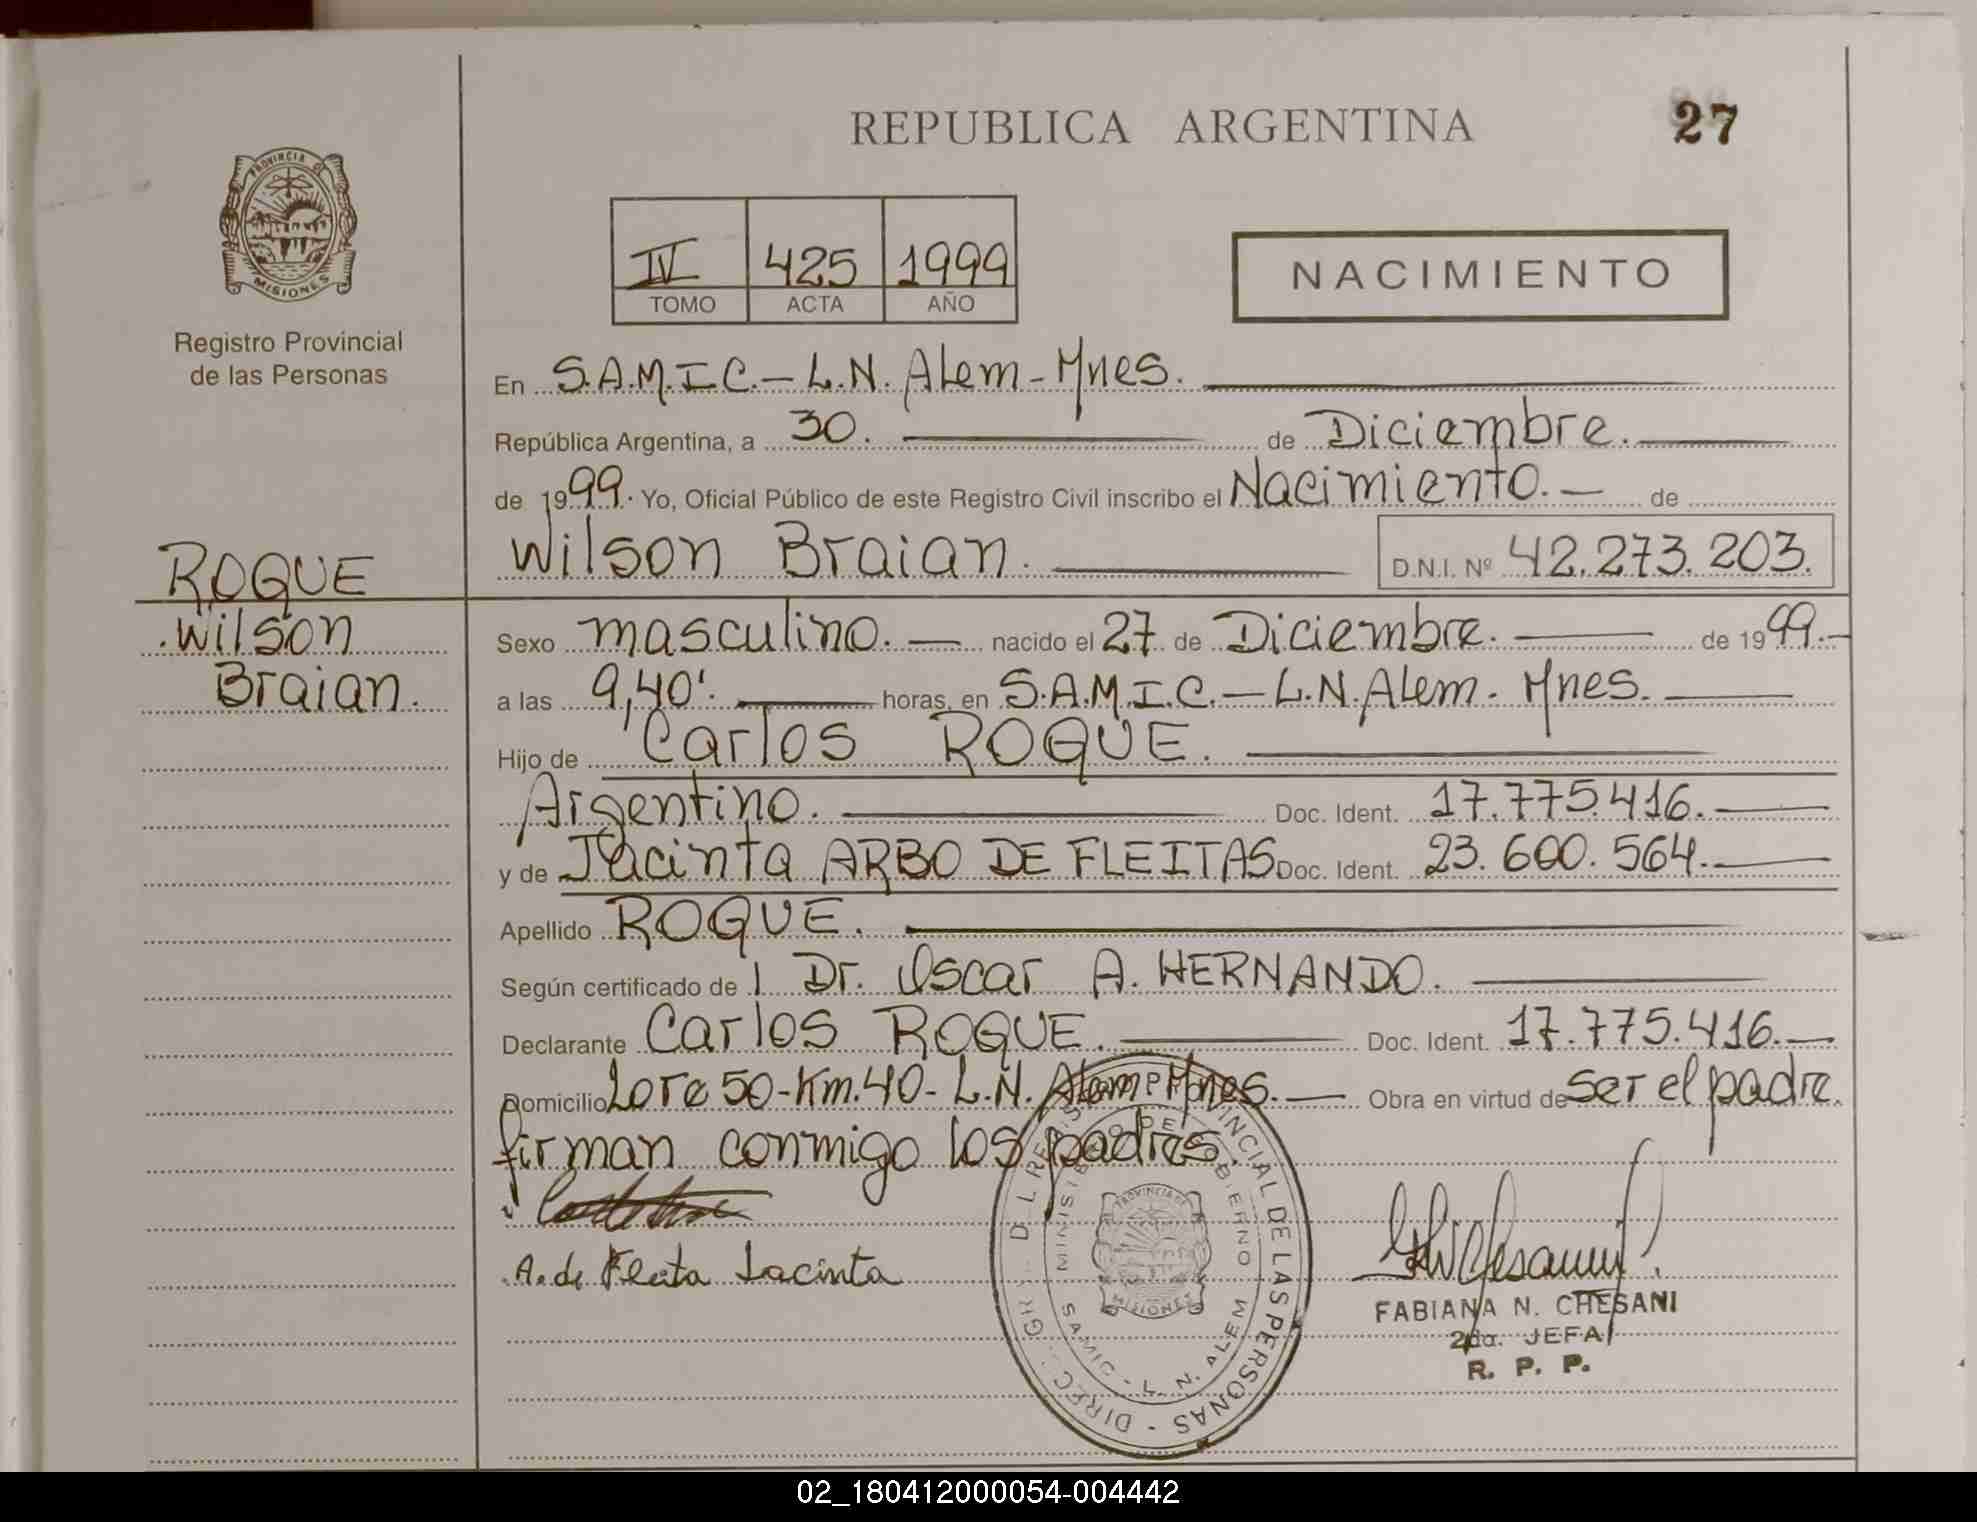 REPUBLICA ARGENTINA
27
PROVINCIA DE
MISIONES
Registro Provincial
de las Personas
IV 425 1999
TOMO ACTA AÑO
NACIMIENTO
En S.A.M.I.C.- L.N. Alem - Mnes.
República Argentina, a 30. de Diciembre.
de 1999. Yo, Oficial Público de este Registro Civil inscribo el Nacimiento. - de
Wilson Braian. D.N.I. Nº 42.273.203.
ROQUE
Wilson
Braian.
Sexo masculino. - nacido el 27 de Diciembre. de 1999.-
a las 9,40'. horas, en S.A.M.I.C.- L.N. Alem. Mnes.
Hijo de Carlos ROQUE.
Argentino. Doc. Ident. 17.775.416.
y de Jacinta ARBO DE FLEITAS Doc. Ident. 23.600.564.
Apellido ROQUE.
Según certificado de Dr. Oscar A. HERNANDO.
Declarante Carlos ROQUE. Doc. Ident. 17.775.416.-
Domicilio Lote 50-Km.40- L.N. Alem Mnes. - Obra en virtud de ser el padre.
firman conmigo los padres.
A. de Fleita Jacinta
MINISTERIO DE GOBIERNO
SAMIC - L. N. ALEM
PROVINCIA DE
MISIONES
FABIANA N. CHESANI
2da. JEFA
R. P. P.
02_180412000054-004442